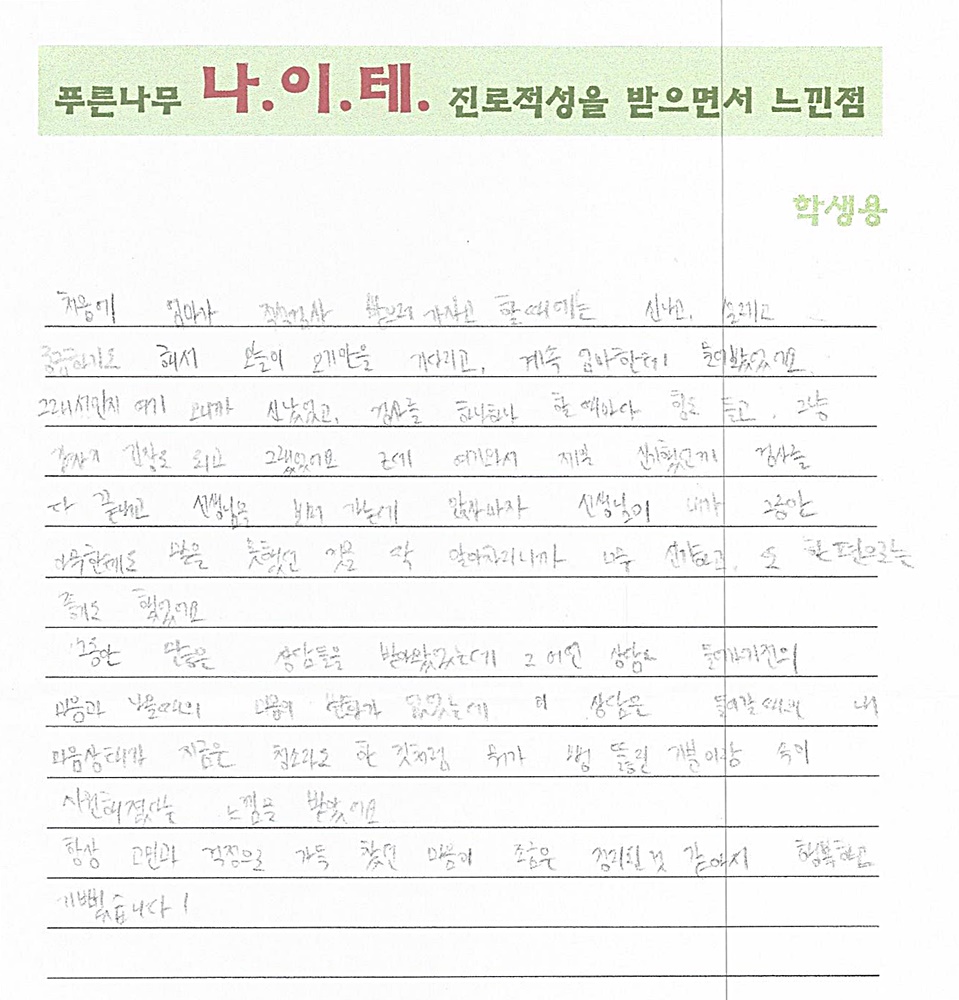 푸른나무 나.이.테. 진로적성을 받으면서 느낀점
학생용
처음에 엄마가 적성검사 받으러 가자고 할 때에는 신나고, 설레고
궁금하기도 해서 오늘이 오기만을 기다리고, 계속 엄마한테 물어봤었어요
그래서인지 여기 오니까 신났었고, 검사를 하나하나 할 때마다 힘도 들고, 그냥
갑자기 긴장도 되고 그랬었어요 근데 여기와서 제일 신기했던게 검사를
다 끝내고 선생님을 보러 가는데 앉자마자 선생님이 내가 그동안
아무한테도 말을 못했던 것을 딱 알아차리니까 너무 신기하고, 또 한편으로는
좋기도 했었어요
그동안 많은 상담들을 받아왔었는데 그 어떤 상담도 들어가기전의
마음과 나올때의 마음에 변화가 없었는데 이 상담은 들어갈때의 내
마음상태가 지금은 청소라도 한 것처럼 뭐가 뻥 뚫린 기분이랑 속이
시원해졌다는 느낌을 받았어요
항상 고민과 걱정으로 가득 찼던 마음이 조금은 정리된 것 같아서 행복하고
기뻤습니다!